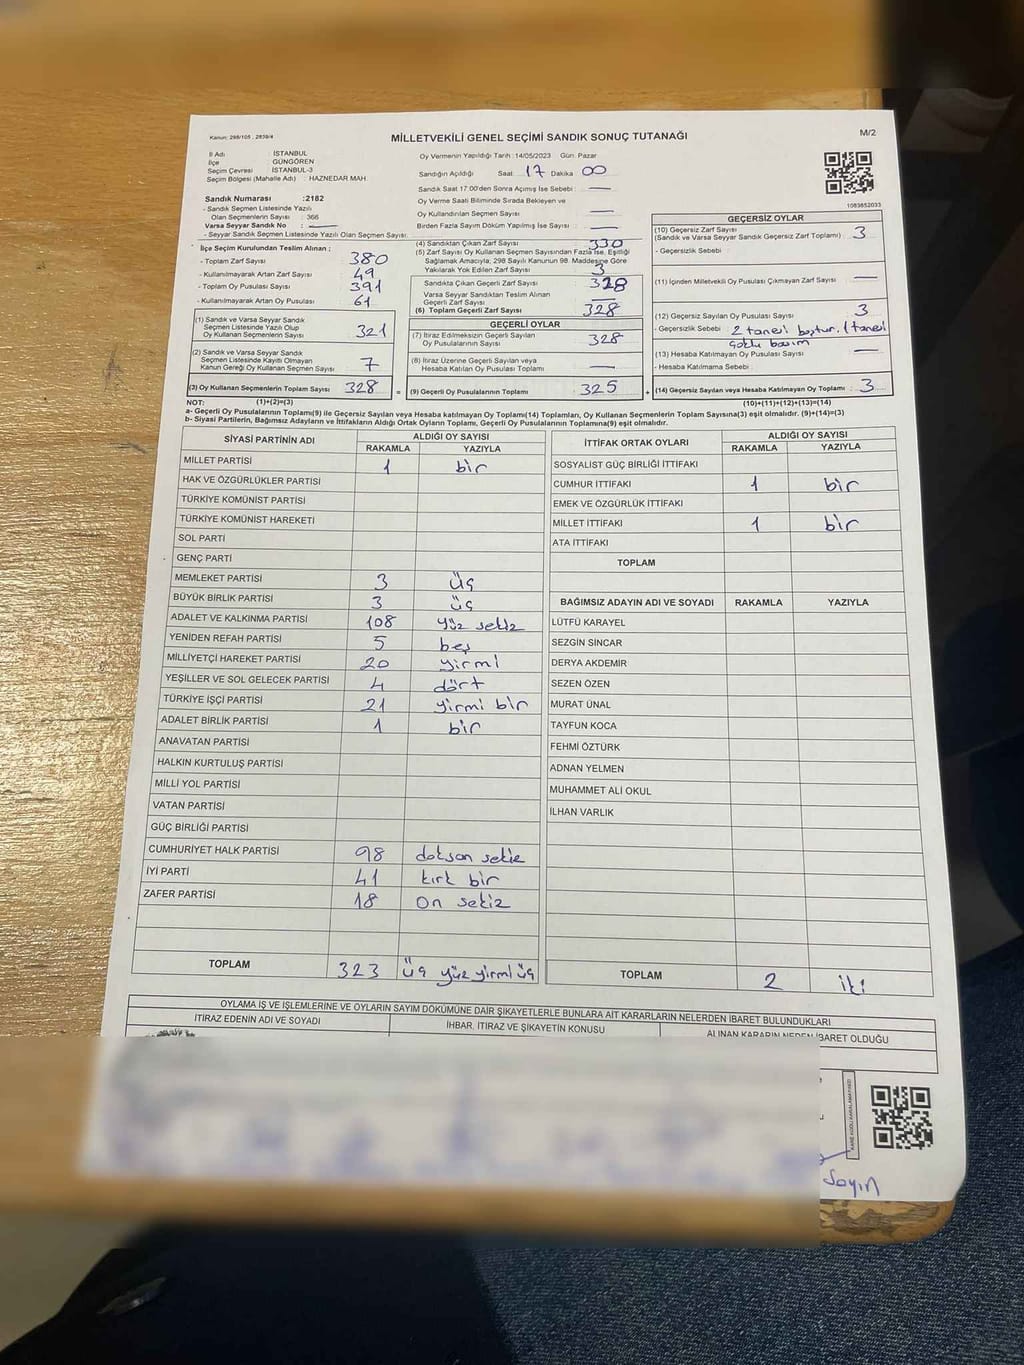 Kanun: 298/105 , 2839/4
MİLLETVEKİLİ GENEL SEÇİMİ SANDIK SONUÇ TUTANAĞI
M/2
İl Adı : İSTANBUL
İlçe : GÜNGÖREN
Seçim Çevresi : İSTANBUL-3
Seçim Bölgesi (Mahalle Adı) : HAZNEDAR MAH.
Oy Vermenin Yapıldığı Tarih :14/05/2023 Gün: Pazar
Sandığın Açıldığı Saat 17 Dakika 00
Sandık Saat 17.00'den Sonra Açılmış İse Sebebi :
Oy Verme Saati Bitiminde Sırada Bekleyen ve
Oy Kullandırılan Seçmen Sayısı
Birden Fazla Sayım Döküm Yapılmış İse Sayısı :
1083852033
Sandık Numarası :2182
- Sandık Seçmen Listesinde Yazılı
Olan Seçmenlerin Sayısı : 366
Varsa Seyyar Sandık No :
- Seyyar Sandık Seçmen Listesinde Yazılı Olan Seçmen Sayısı:
İlçe Seçim Kurulundan Teslim Alınan ;
- Toplam Zarf Sayısı 380
- Kullanılmayarak Artan Zarf Sayısı 49
- Toplam Oy Pusulası Sayısı 391
- Kullanılmayarak Artan Oy Pusulası 61
(1) Sandık ve Varsa Seyyar Sandık
Seçmen Listesinde Yazılı Olup
Oy Kullanan Seçmenlerin Sayısı 321
(2) Sandık ve Varsa Seyyar Sandık
Seçmen Listesinde Kayıtlı Olmayan
Kanun Gereği Oy Kullanan Seçmen Sayısı 7
(3) Oy Kullanan Seçmenlerin Toplam Sayısı 328 =
(4) Sandıktan Çıkan Zarf Sayısı 330
(5) Zarf Sayısı Oy Kullanan Seçmen Sayısından Fazla İse, Eşitliği
Sağlamak Amacıyla, 298 Sayılı Kanunun 98. Maddesine Göre
Yakılarak Yok Edilen Zarf Sayısı 3
Sandıkta Çıkan Geçerli Zarf Sayısı : 328
Varsa Seyyar Sandıktan Teslim Alınan
Geçerli Zarf Sayısı :
(6) Toplam Geçerli Zarf Sayısı : 328
GEÇERLİ OYLAR
(7) İtiraz Edilmeksizin Geçerli Sayılan
Oy Pusulalarının Sayısı 328
(8) İtiraz Üzerine Geçerli Sayılan veya
Hesaba Katılan Oy Pusulası Sayısı
(9) Geçerli Oy Pusulalarının Toplamı 325 +
GEÇERSİZ OYLAR
(10) Geçersiz Zarf Sayısı
(Sandık ve Varsa Seyyar Sandık Geçersiz Zarf Toplamı) : 3
- Geçersizlik Sebebi :
(11) İçinden Milletvekili Oy Pusulası Çıkmayan Zarf Sayısı :
(12) Geçersiz Sayılan Oy Pusulası Sayısı : 3
- Geçersizlik Sebebi : 2 tanesi boştur. 1 tanesi
çoklu basım
(13) Hesaba Katılmayan Oy Pusulası Sayısı :
- Hesaba Katılmama Sebebi :
(14) Geçersiz Sayılan veya Hesaba Katılmayan Oy Toplamı : 3
NOT: (1)+(2)=(3) (10)+(11)+(12)+(13)=(14)
a- Geçerli Oy Pusulalarının Toplamı(9) ile Geçersiz Sayılan veya Hesaba katılmayan Oy Toplamı(14) Toplamları, Oy Kullanan Seçmenlerin Toplam Sayısına(3) eşit olmalıdır. (9)+(14)=(3)
b- Siyasi Partilerin, Bağımsız Adayların ve İttifakların Aldığı Ortak Oyların Toplamı, Geçerli Oy Pusulalarının Toplamına(9) eşit olmalıdır.
SİYASİ PARTİNİN ADI ALDIĞI OY SAYISI
RAKAMLA YAZIYLA
MİLLET PARTİSİ 1 bir
HAK VE ÖZGÜRLÜKLER PARTİSİ
TÜRKİYE KOMÜNİST PARTİSİ
TÜRKİYE KOMÜNİST HAREKETİ
SOL PARTİ
GENÇ PARTİ
MEMLEKET PARTİSİ 3 üç
BÜYÜK BİRLİK PARTİSİ 3 üç
ADALET VE KALKINMA PARTİSİ 108 yüz sekiz
YENİDEN REFAH PARTİSİ 5 beş
MİLLİYETÇİ HAREKET PARTİSİ 20 yirmi
YEŞİLLER VE SOL GELECEK PARTİSİ 4 dört
TÜRKİYE İŞÇİ PARTİSİ 21 yirmi bir
ADALET BİRLİK PARTİSİ 1 bir
ANAVATAN PARTİSİ
HALKIN KURTULUŞ PARTİSİ
MİLLİ YOL PARTİSİ
VATAN PARTİSİ
GÜÇ BİRLİĞİ PARTİSİ
CUMHURİYET HALK PARTİSİ 98 doksan sekiz
İYİ PARTİ 41 kırk bir
ZAFER PARTİSİ 18 on sekiz
TOPLAM 323 üç yüz yirmi üç
İTTİFAK ORTAK OYLARI ALDIĞI OY SAYISI
RAKAMLA YAZIYLA
SOSYALİST GÜÇ BİRLİĞİ İTTİFAKI
CUMHUR İTTİFAKI 1 bir
EMEK VE ÖZGÜRLÜK İTTİFAKI
MİLLET İTTİFAKI 1 bir
ATA İTTİFAKI
TOPLAM
BAĞIMSIZ ADAYIN ADI VE SOYADI RAKAMLA YAZIYLA
LÜTFÜ KARAYEL
SEZGİN SİNCAR
DERYA AKDEMİR
SEZEN ÖZEN
MURAT ÜNAL
TAYFUN KOCA
FEHMİ ÖZTÜRK
ADNAN YELMEN
MUHAMMET ALİ OKUL
İLHAN VARLIK
TOPLAM 2 iki
OYLAMA İŞ VE İŞLEMLERİNE VE OYLARIN SAYIM DÖKÜMÜNE DAİR ŞİKAYETLERLE BUNLARA AİT KARARLARIN NELERDEN İBARET BULUNDUKLARI
İTİRAZ EDENİN ADI VE SOYADI İHBAR, İTİRAZ VE ŞİKAYETİN KONUSU ALINAN KARARIN NEDEN İBARET OLDUĞU